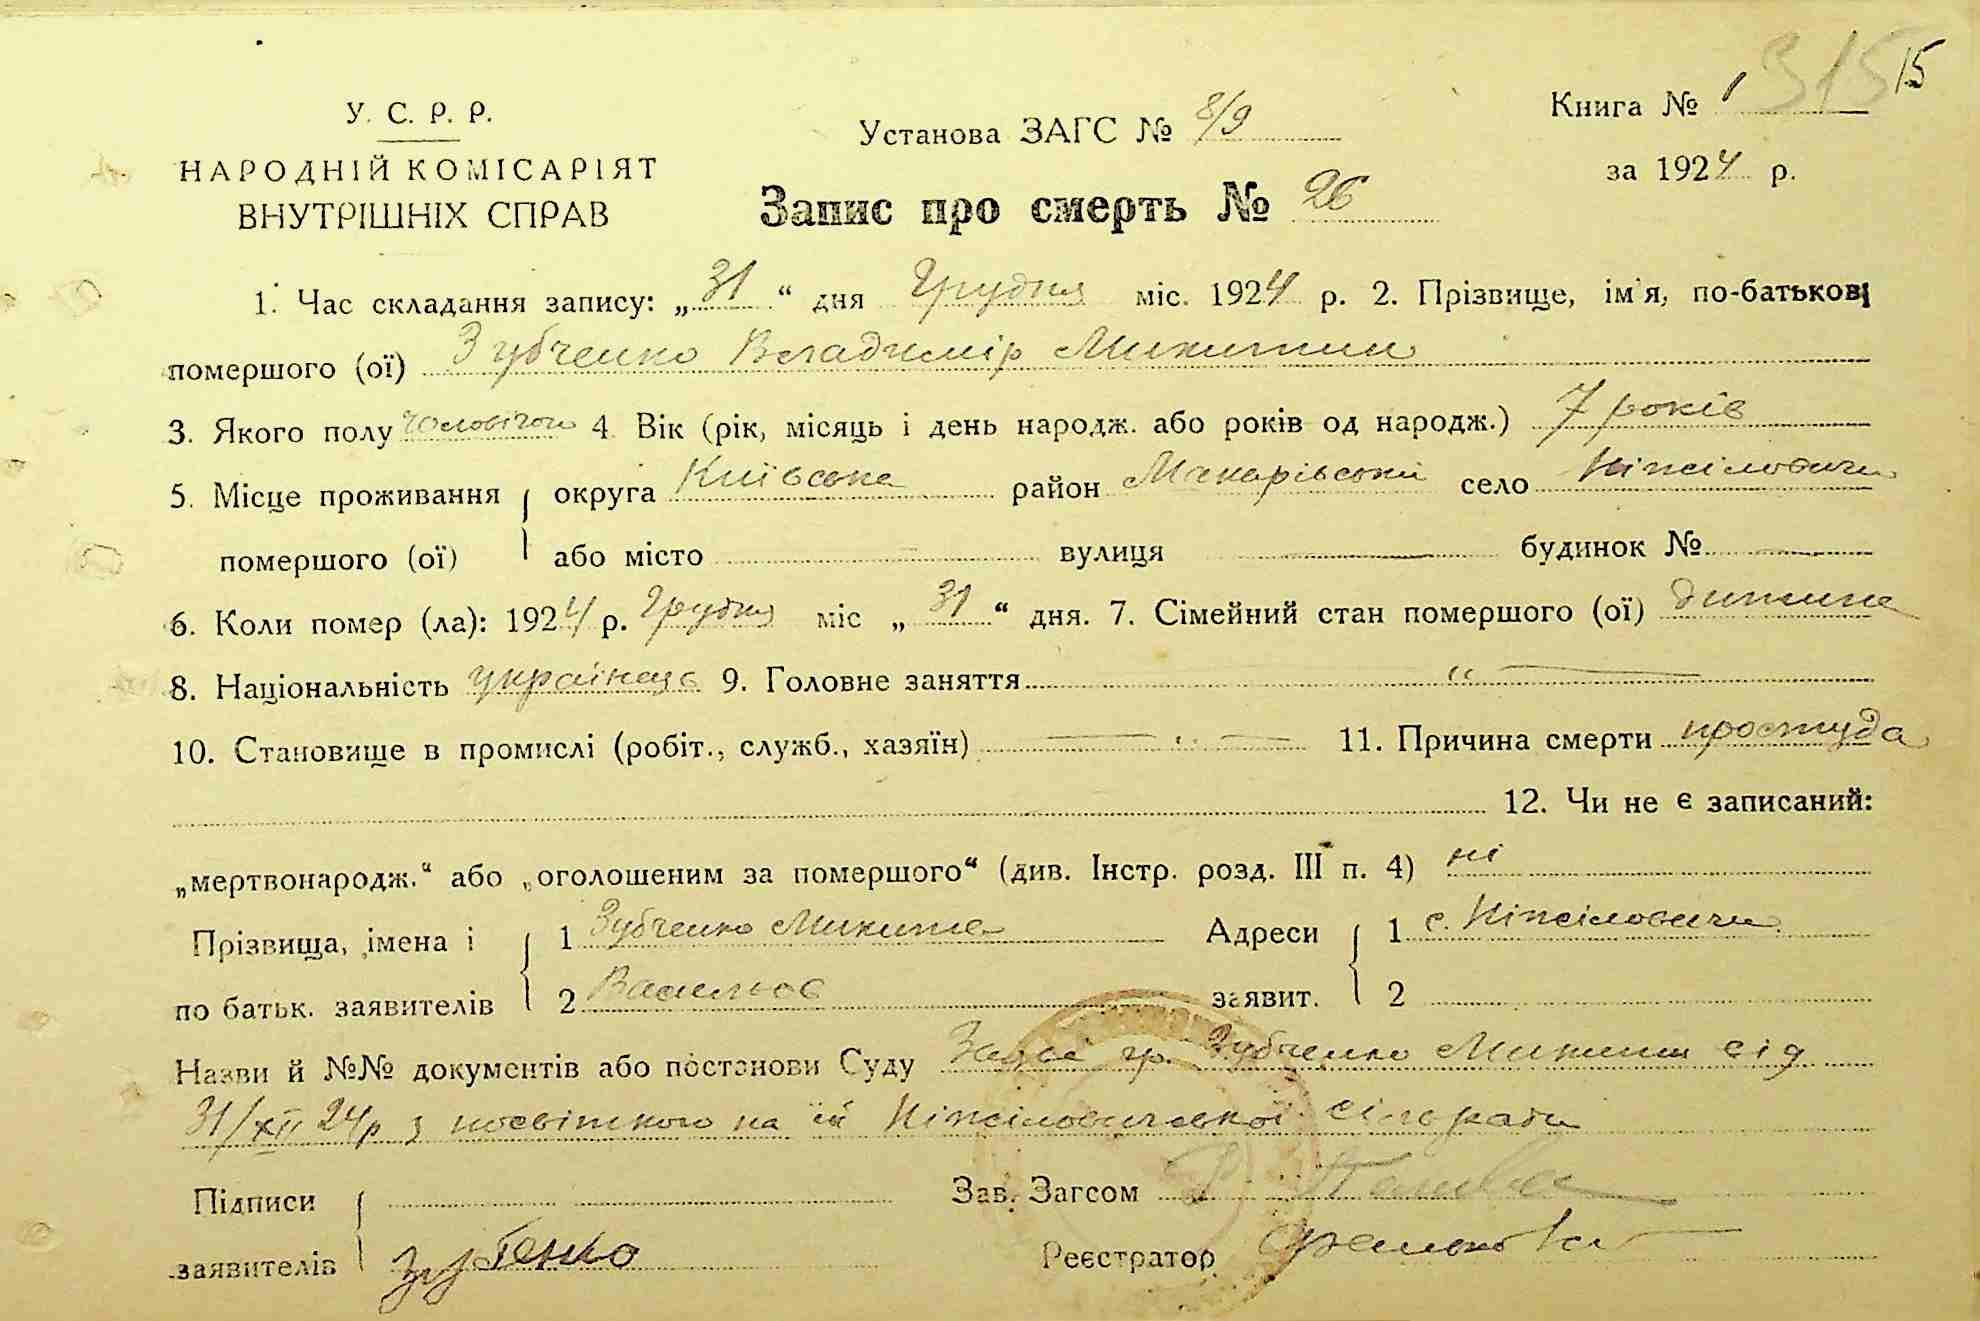 315 15
У. С. Р. Р.
НАРОДНІЙ КОМІСАРІЯТ
ВНУТРІШНІХ СПРАВ
Установа ЗАГС № 8/9
Запис про смерть № 26
Книга № 1
за 1924 р.
1. Час складання запису: „31“ дня Грудня міс. 1924 р. 2. Прізвище, ім'я, по-батькові
помершого (ої) Зубченко Владимір Микитин
3. Якого полу чоловічого 4. Вік (рік, місяць і день народж. або років од народж.) 7 років
5. Місце проживання округа Київська район Макарівський село Ніжиловичи
помершого (ої) або місто — вулиця — будинок № —
6. Коли помер (ла): 1924 р. Грудня міс „31“ дня. 7. Сімейний стан помершого (ої) дитина
8. Національність українець 9. Головне заняття — „ —
10. Становище в промислі (робіт., служб., хазяїн) — „ — 11. Причина смерти простуда
12. Чи не є записаний:
„мертвонародж.“ або „оголошеним за помершого“ (див. Інстр. розд. III п. 4) ні
Прізвища, імена і 1 Зубченко Микита Адреси 1 с. Ніжиловичи
по батьк. заявителів 2 заявит. 2
Назви й №№ документів або постанови Суду Заява гр. Зубченко Микити від
31/XII 24р з посвіткою на їй Ніжиловичської сільради
Підписи Зав. Загсом
заявителів Зубченко Реєстратор